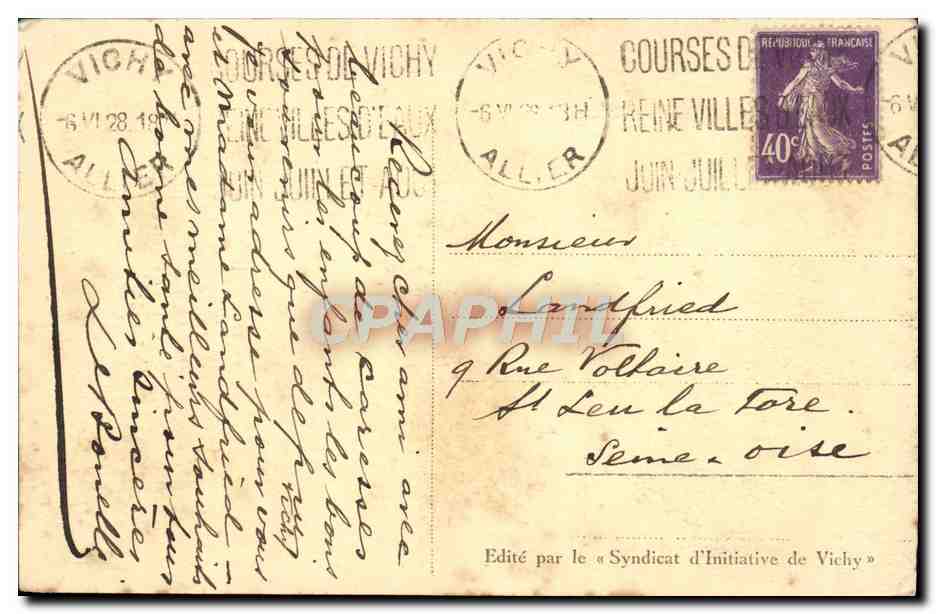 VICHY
-6 VI 28. 18
ALLIER
COURSES DE VICHY
REINE VILLES D'EAUX
JUIN JUILLET AOU
VICHY
-6 VI 28 18H
ALLIER
COURSES DE
REINE VILLES D'EAUX
JUIN-JUILLET
REPUBLIQUE FRANÇAISE
40c
POSTES
Recevez cher ami avec
beaucoup de caresses
pour les enfants les bons
souvenirs que depuis Vichy
je vous adresse pour vous
et Madame Landfried -
avec mes meilleurs souhaits
de bonne santé pour tous
Amitiés Sincères
CPAPHIL
Monsieur
Landfried
9 Rue Voltaire
St Leu la Fore.
Seine & oise
Edité par le « Syndicat d'Initiative de Vichy »